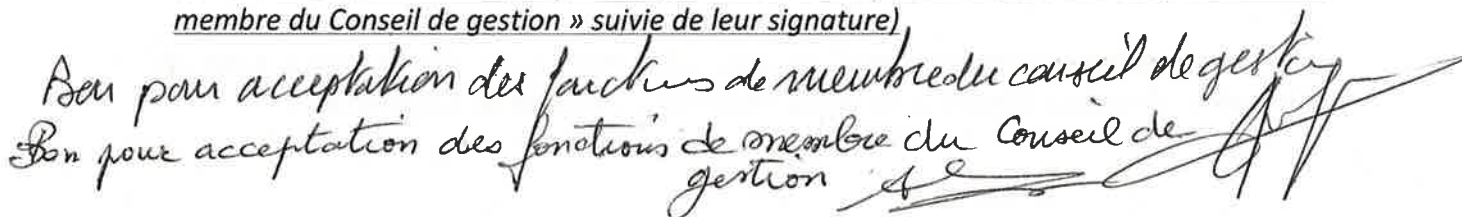 membre du Conseil de gestion » suivie de leur signature)
Bon pour acceptation des fonctions de membre du conseil de gestion
Bon pour acceptation des fonctions de membre du Conseil de
gestion